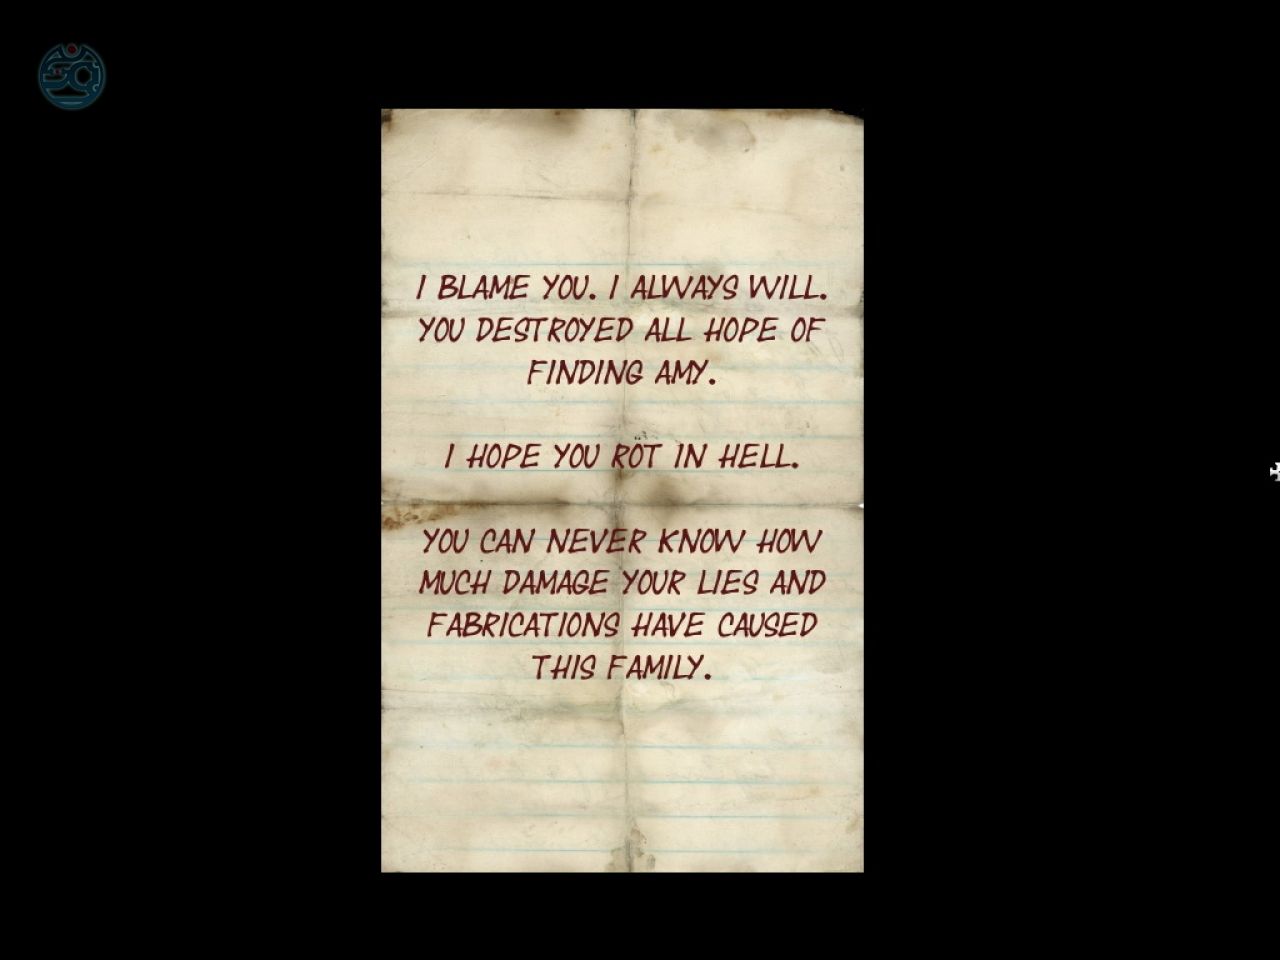 I BLAME YOU. I ALWAYS WILL.
YOU DESTROYED ALL HOPE OF
FINDING AMY.
I HOPE YOU ROT IN HELL.
YOU CAN NEVER KNOW HOW
MUCH DAMAGE YOUR LIES AND
FABRICATIONS HAVE CAUSED
THIS FAMILY.